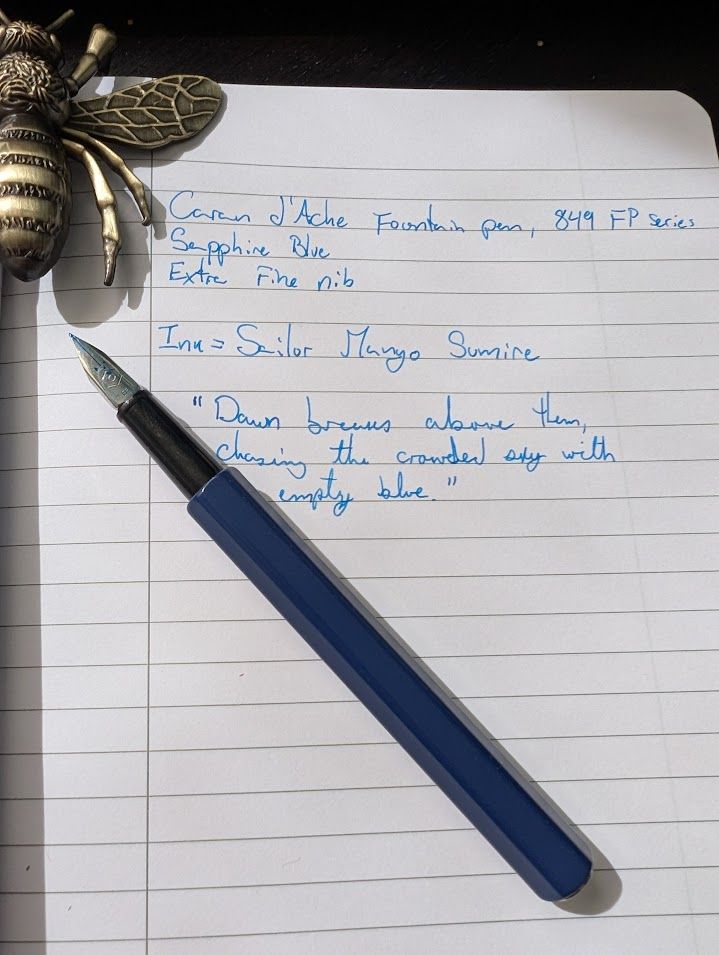 Caran d'Ache Fountain pen, 849 FP series
Sapphire Blue
Extra Fine nib
Ink = Sailor Manyo Sumire
"Dawn breaks above them,
chasing the crowded sky with
empty blue."